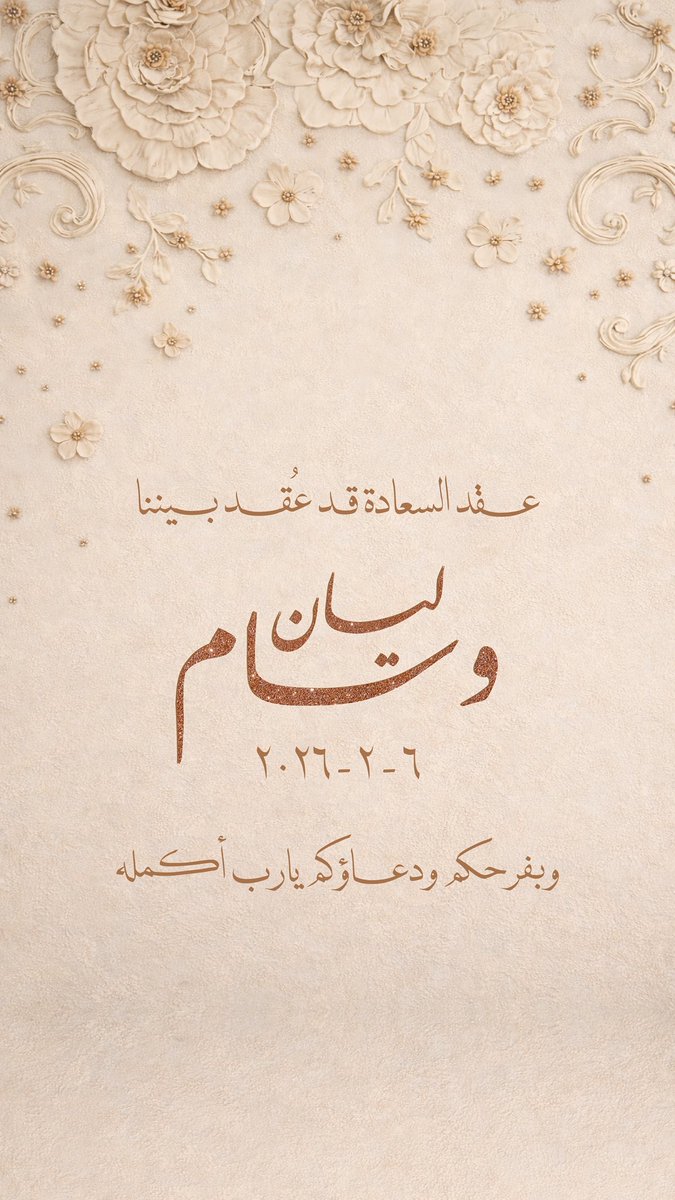 عقد السعادة قد عُقد بيننا
ليان
وسام
٦-٢-٢٠٢٦
وبفرحكم ودعاؤكم يارب أكمله